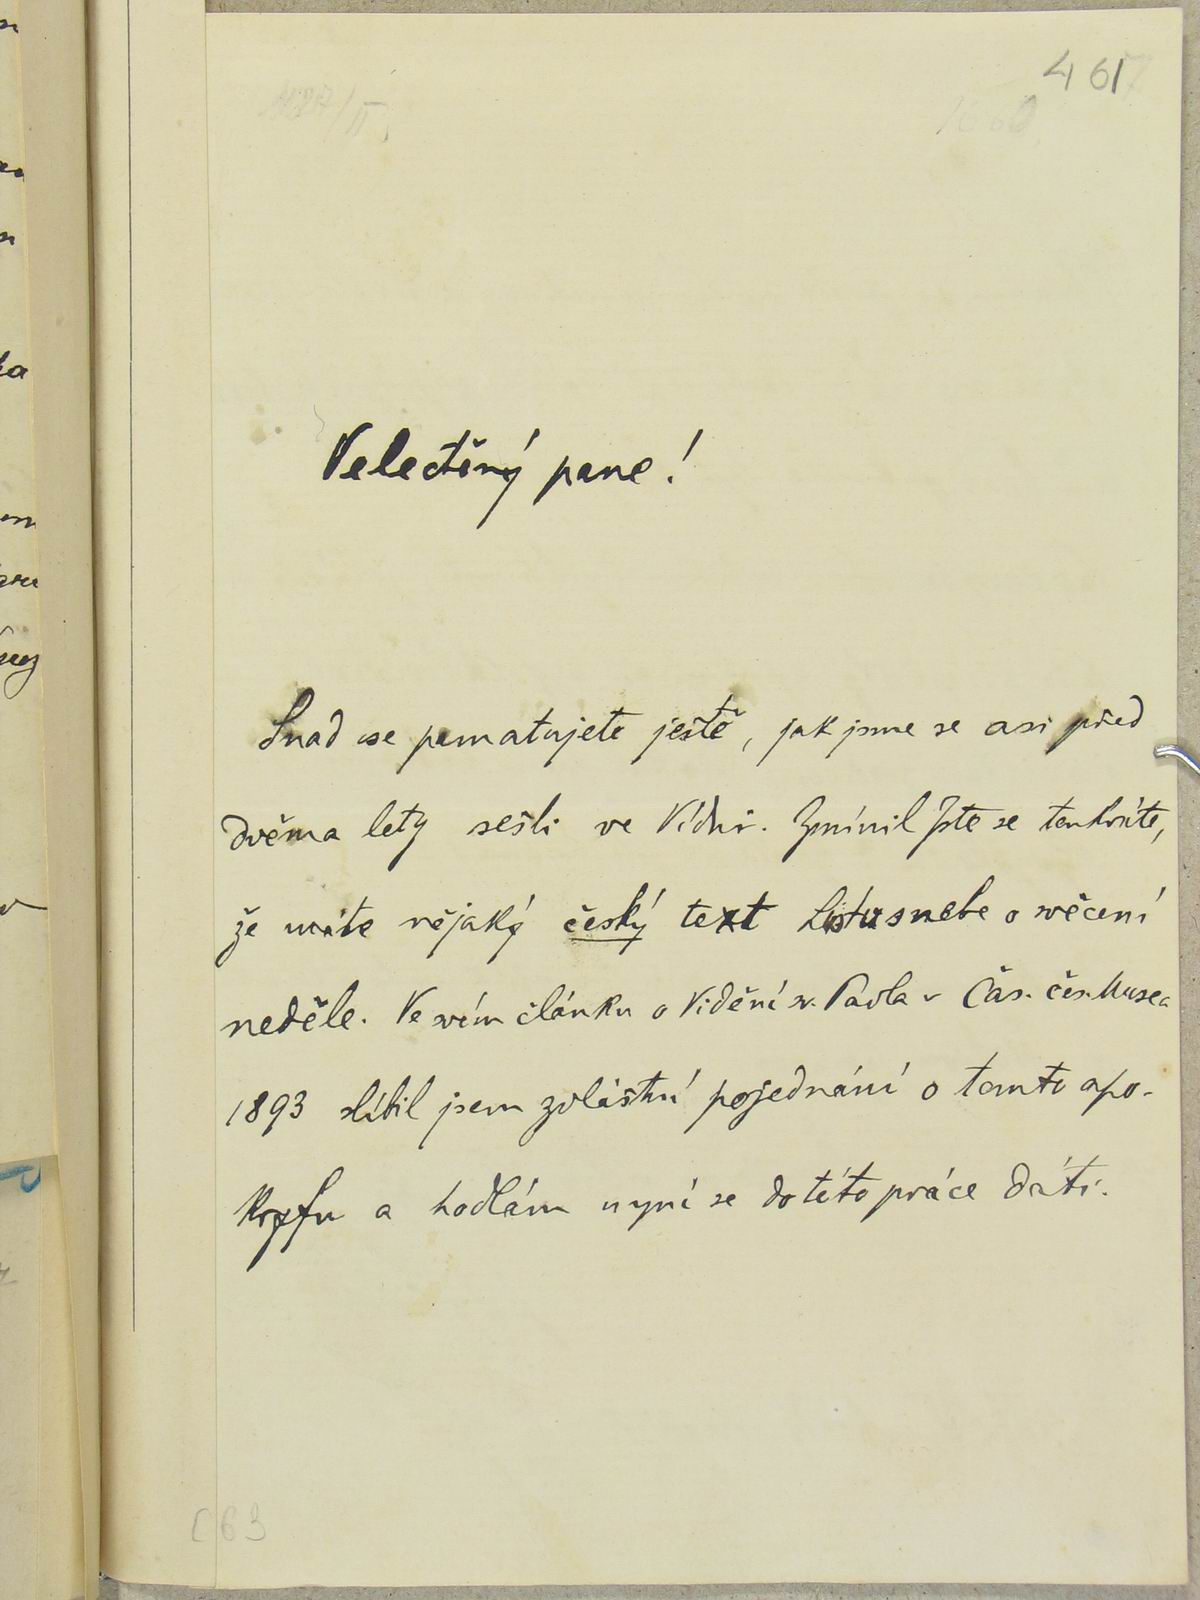 461
Velectěný pane!
Snad se pamatujete ještě, jak jsme se asi před
dvěma lety sešli ve Vídni. Zmínil Jste se tenkráte,
že máte nějaký český text Listu s nebe o svěcení
neděle. Ve svém článku o Vidění sv. Pavla v Čas. čes. Musea
1893 slíbil jsem zvláštní pojednání o tomto apo-
kryfu a hodlám nyní se do této práce dáti.
C63